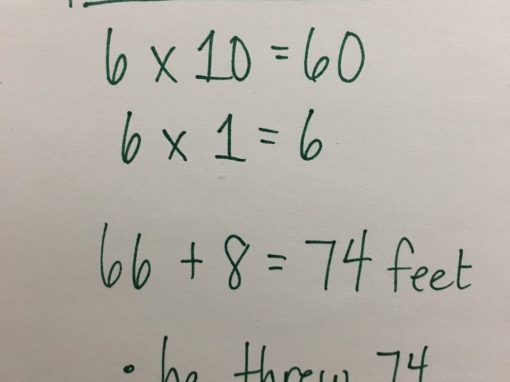 6 x 10 = 60
6 x 1 = 6
66 + 8 = 74 feet
• he threw 74